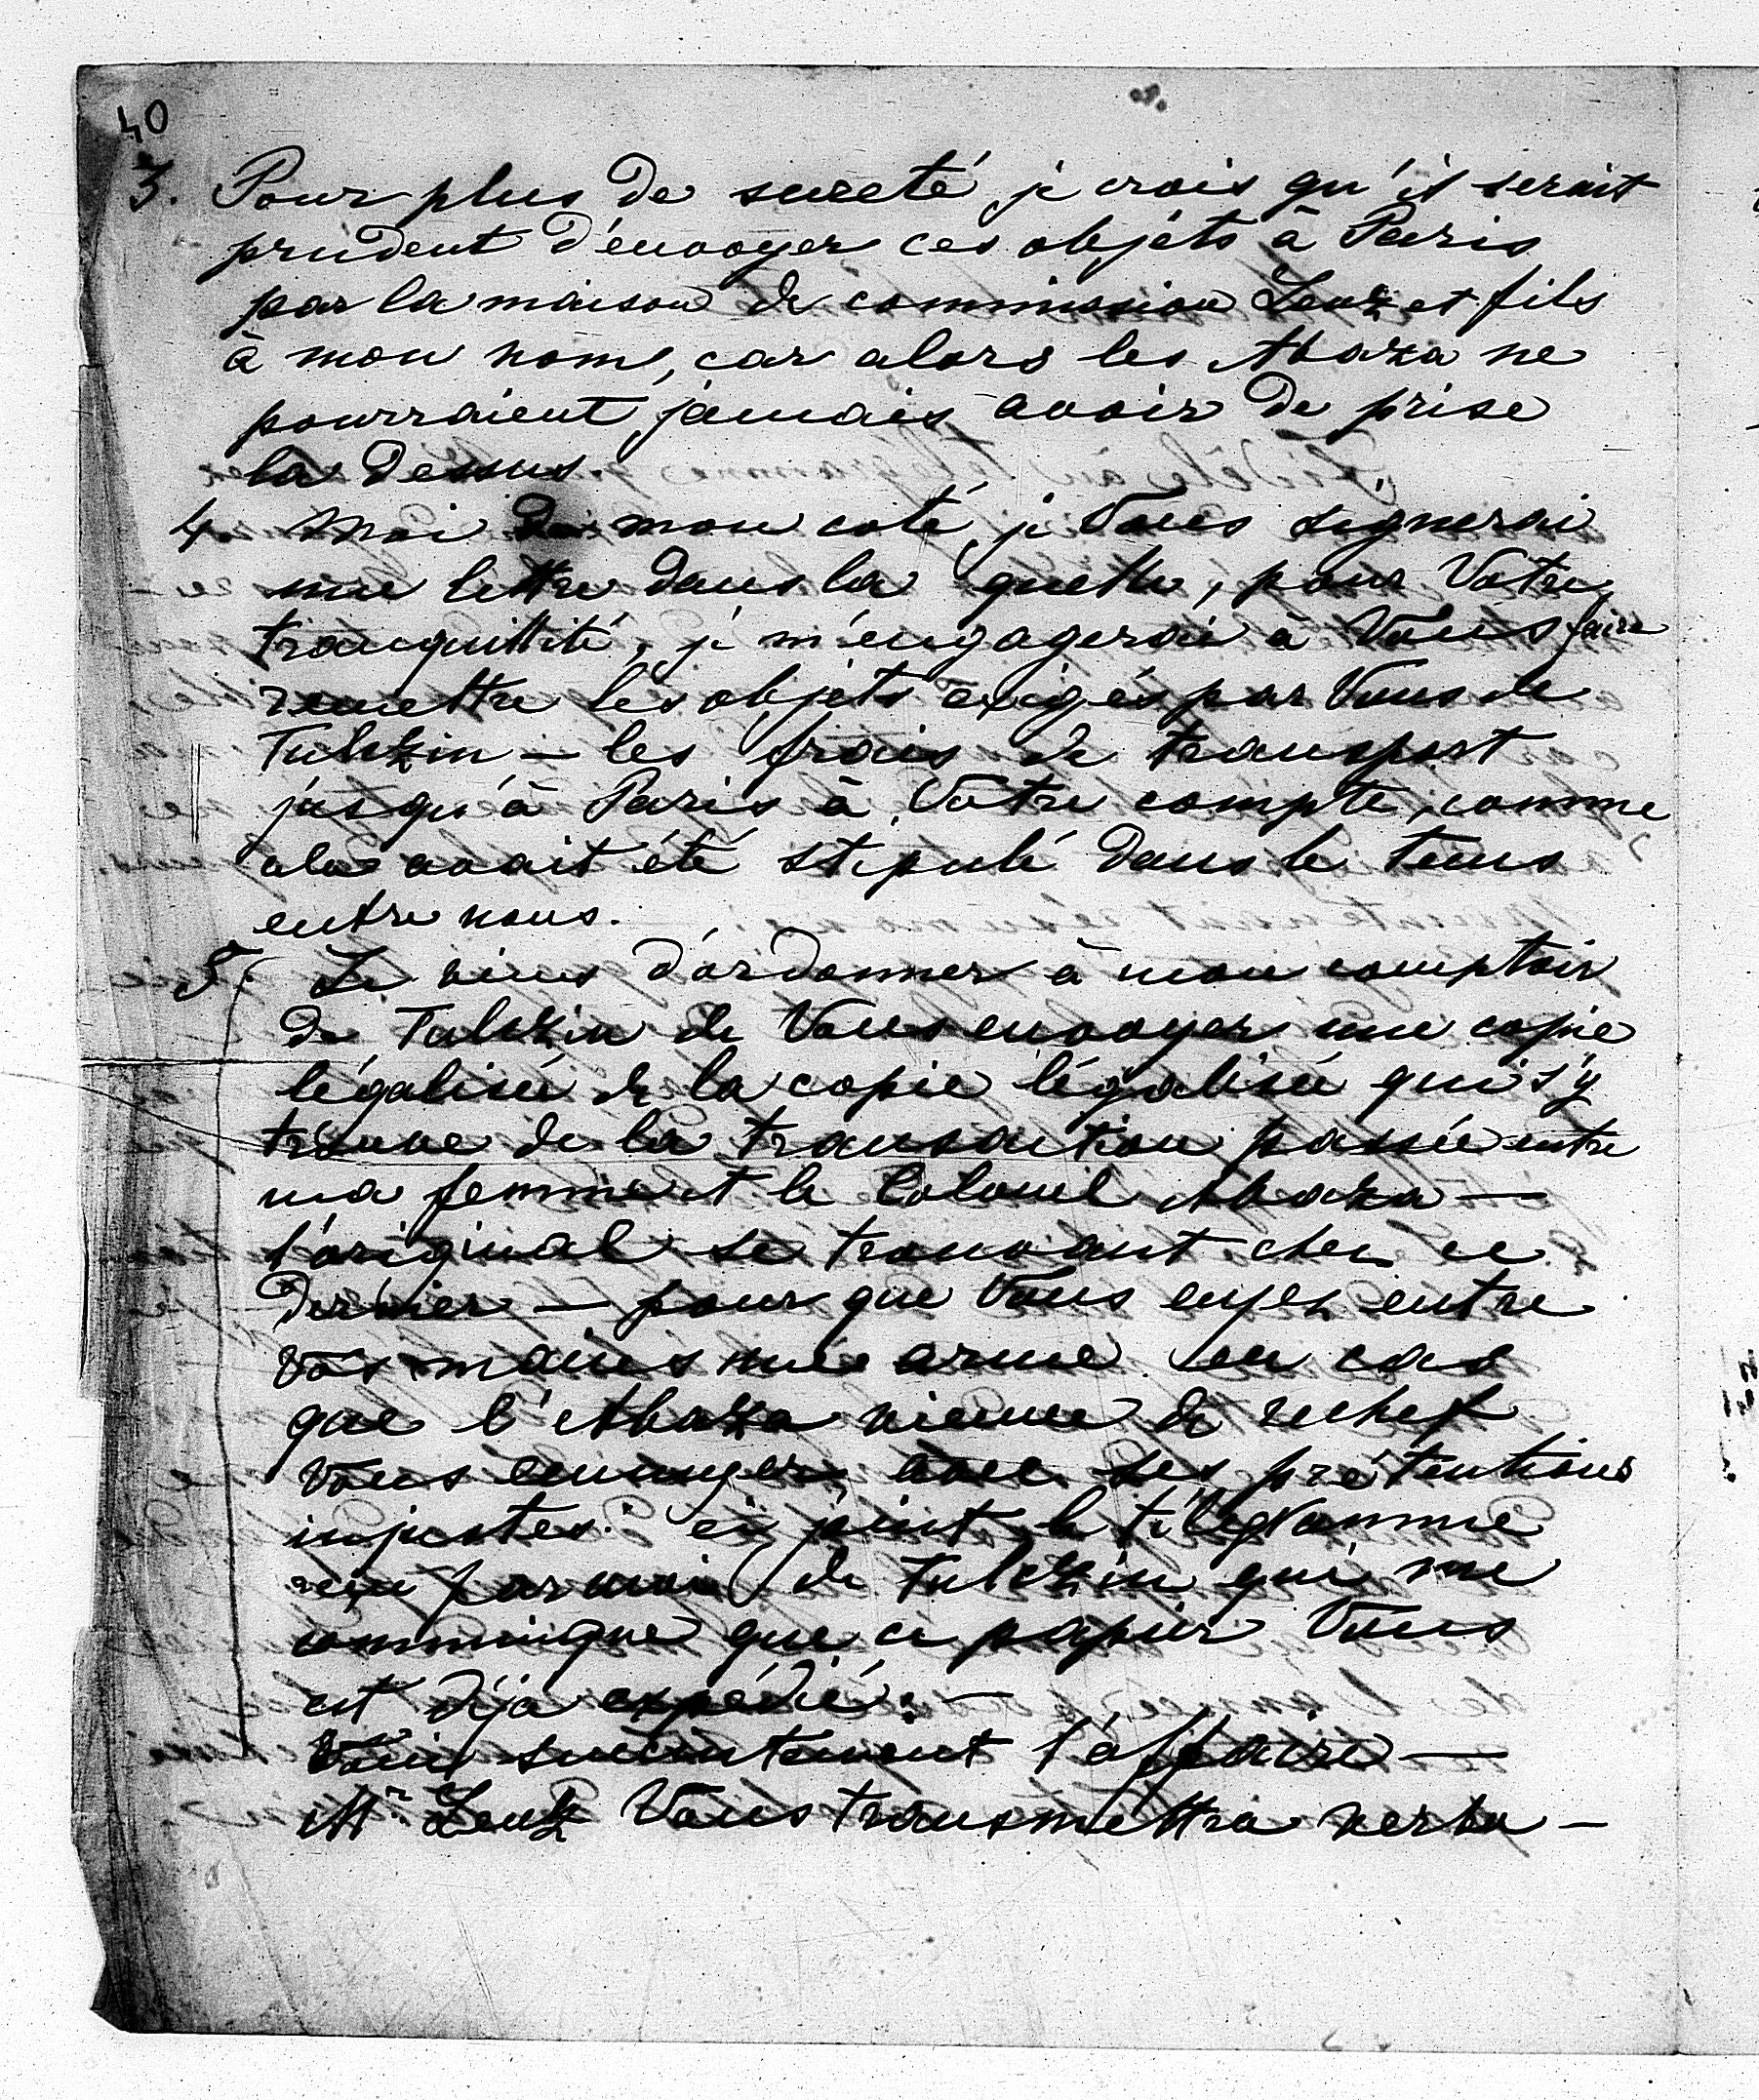 40
3. Pour plus de sureté je crois qu'il serait
prudent d'envoyer ces objéts à Paris
par la maison de commission Lenz et fils
à mon nom, car alors les Abaza ne
pourraient jamais avoir de prise
la dessus.
4 Moi de mon coté je Vous signerai
une lettre dans la quelle, pour Votre
tranquillité, je m'engagerai à Vous faire
remettre les objéts exigés par Vous de
Tulczin — les frais de transport
jusqu'à Paris à Votre compte, comme
cela avait été stipulé dans le tems
entre nous.
5 Je viens d'ordonner à mon comptoir
de Tulczin de Vous envoyer une copie
légalisée de la copie légalisée qui s'y
trouve de la transaction passée entre
ma femme et le Colonel Abaza —
l'original se trouvant chez ce
dernier — pour que Vous eyez entre
Vos mains une arme en cas
que l'Abaza vienne de rechef
Vous ennuyer avec ses prétentions
injustes. ci joint le télégramme
reçu par moi de Tulczin qui me
communique que ce papier Vous
est déja expédié. —
Voici succintement l'affaire —
Mr Lenz Vous transmettra verba —